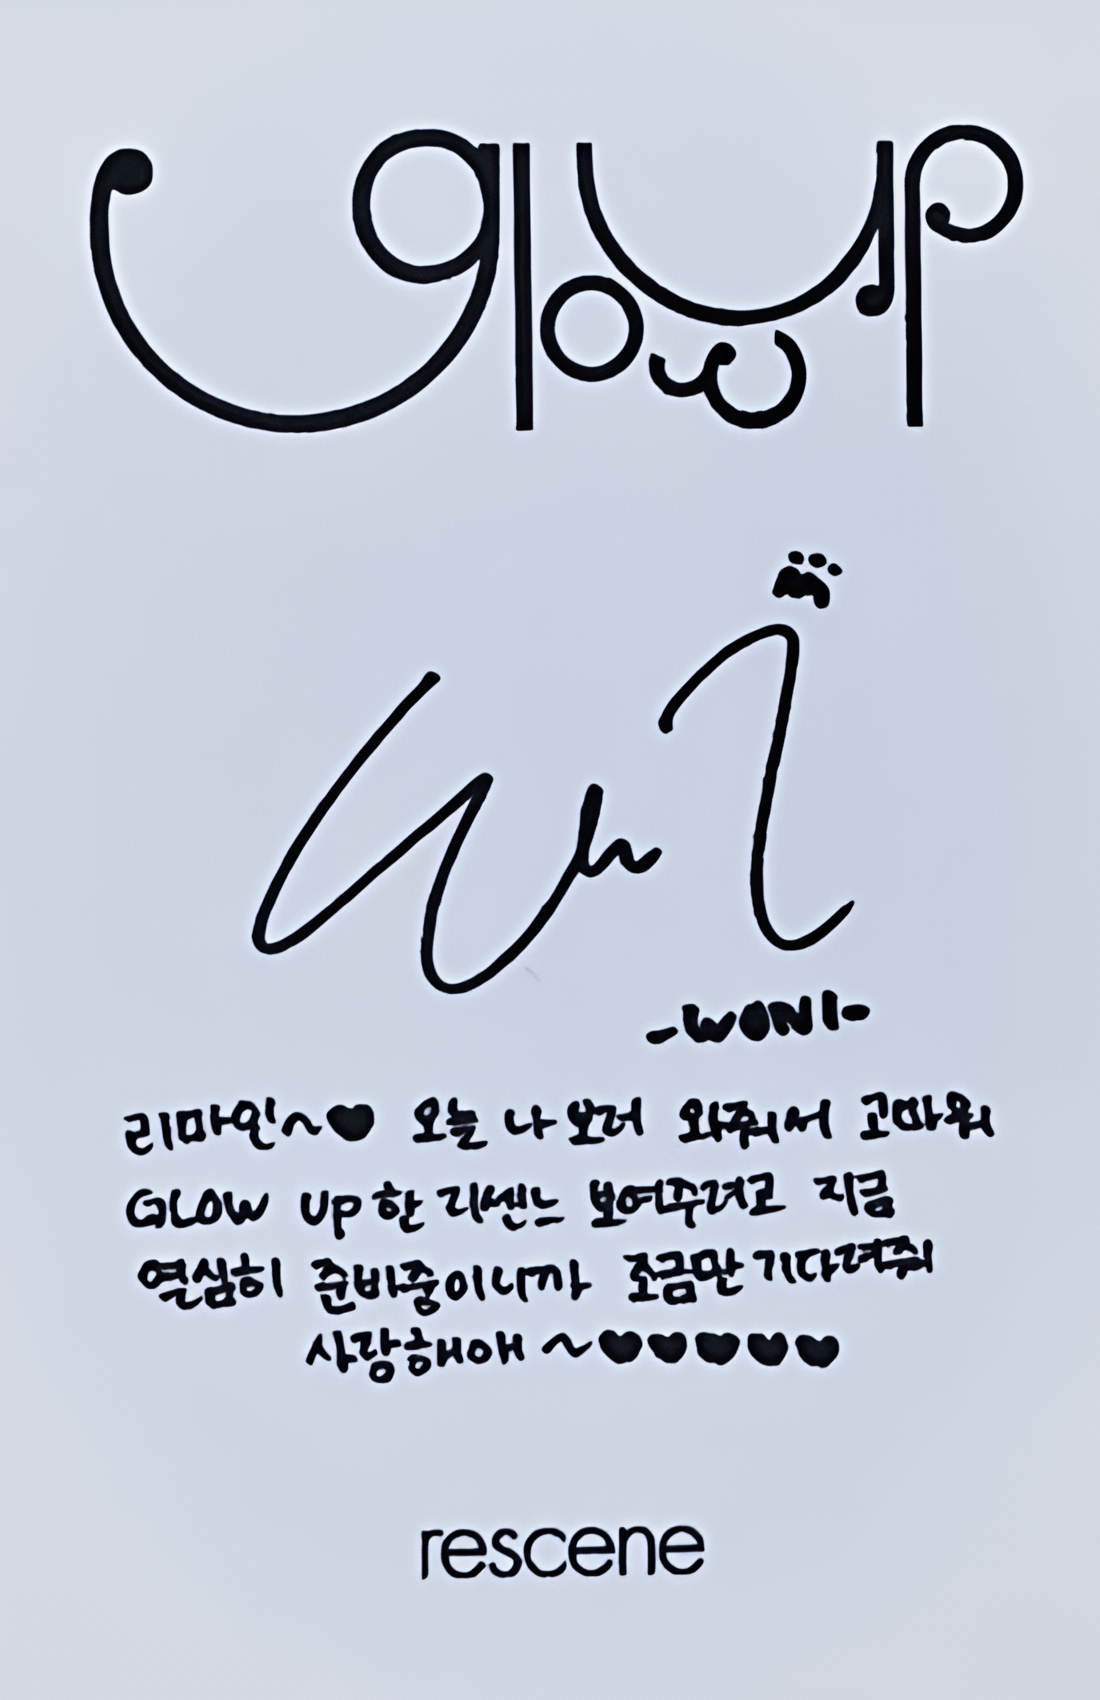 glow up
-WONI-
리마인~♥ 오늘 나 보러 와줘서 고마워
GLOW UP 한 리센느 보여주려고 지금
열심히 준비중이니까 조금만 기다려줘
사랑해애 ~♥♥♥♥♥
rescene